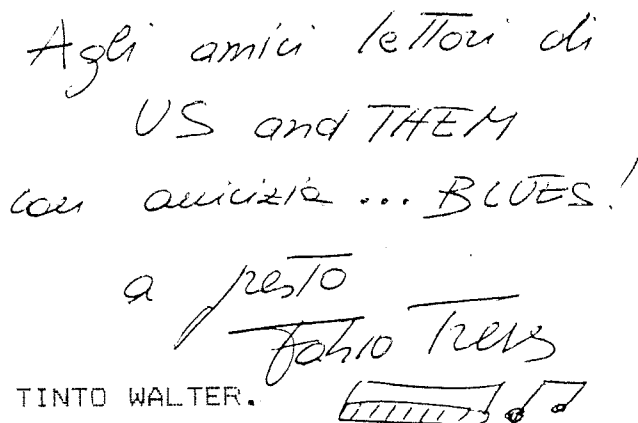 Agli amici lettori di
US and THEM
con amicizia ... BLUES!
a presto
Fabio Treves
TINTO WALTER.